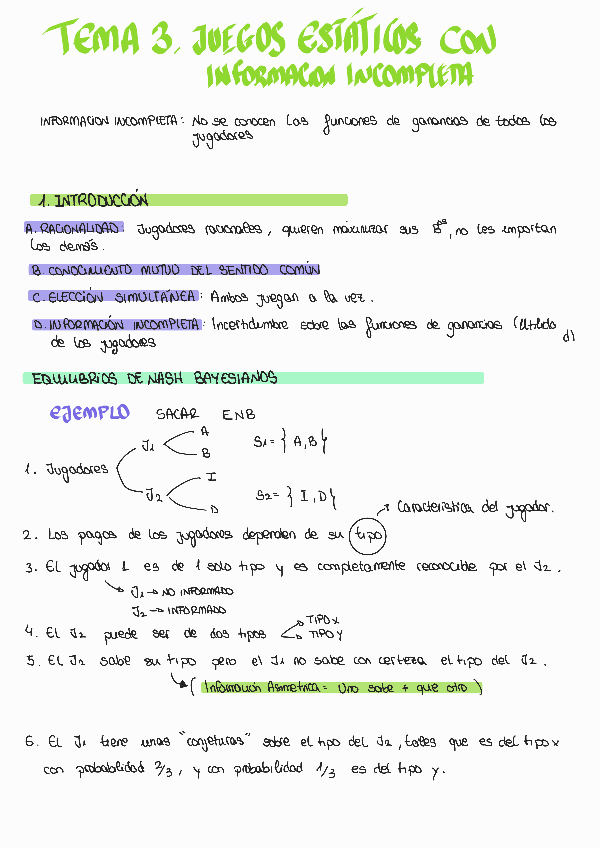 TEMA 3. JUEGOS ESTÁTICOS CON
INFORMACION INCOMPLETA
INFORMACION INCOMPLETA: No se conocen las funciones de ganancias de todos los
jugadores
1. INTRODUCCIÓN
A. RACIONALIDAD: Jugadores racionales, quieren maximizar sus Bºs, no les importan
los demás.
B. CONOCIMIENTO MUTUO DEL SENTIDO COMÚN
C. ELECCIÓN SIMULTÁNEA: Ambos juegan a la vez.
D. INFORMACIÓN INCOMPLETA: Incertidumbre sobre las funciones de ganancias (Utilida
d)
de los jugadores
EQUILIBRIOS DE NASH BAYESIANOS
EJEMPLO SACAR ENB
1. Jugadores
J1 A B S1 = { A, B }
J2 I D S2 = { I, D }
Característica del jugador.
2. Los pagos de los jugadores dependen de su tipo
3. El jugador 1 es de 1 solo tipo y es completamente reconocible por el J2.
J1 → NO INFORMADO
J2 → INFORMADO
4. El J2 puede ser de dos tipos TIPO X
TIPO Y
5. El J2 sabe su tipo pero el J1 no sabe con certeza el tipo del J2.
( Información Asimetrica = Uno sabe + que otro )
6. El J1 tiene unas "conjeturas" sobre el tipo del J2, tales que es del tipo x
con probabilidad 2/3, y con probabilidad 1/3 es del tipo y.